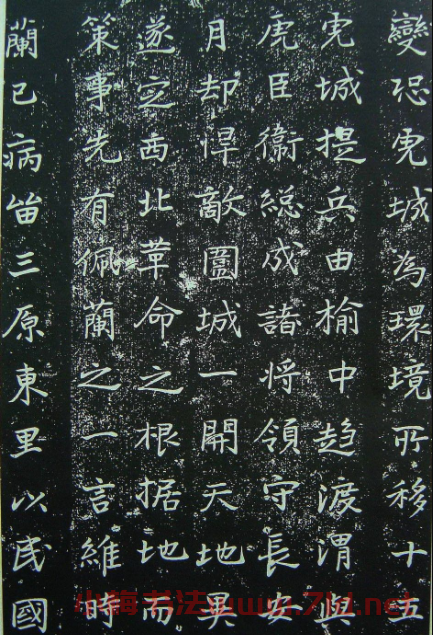 變恐虎城為環境所移十五
虎城提兵由榆中趋渡渭與
虎臣衞総成諸将領守長安
月却悍敵圍城一開天地昊
遂定西北革命之根据地而
策事先有佩蘭之一言維時
蘭已病留三原東里以民國